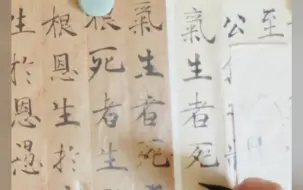 至
公
氣生者死
氣生者死
根死者生
根恩生於
生於恩愚